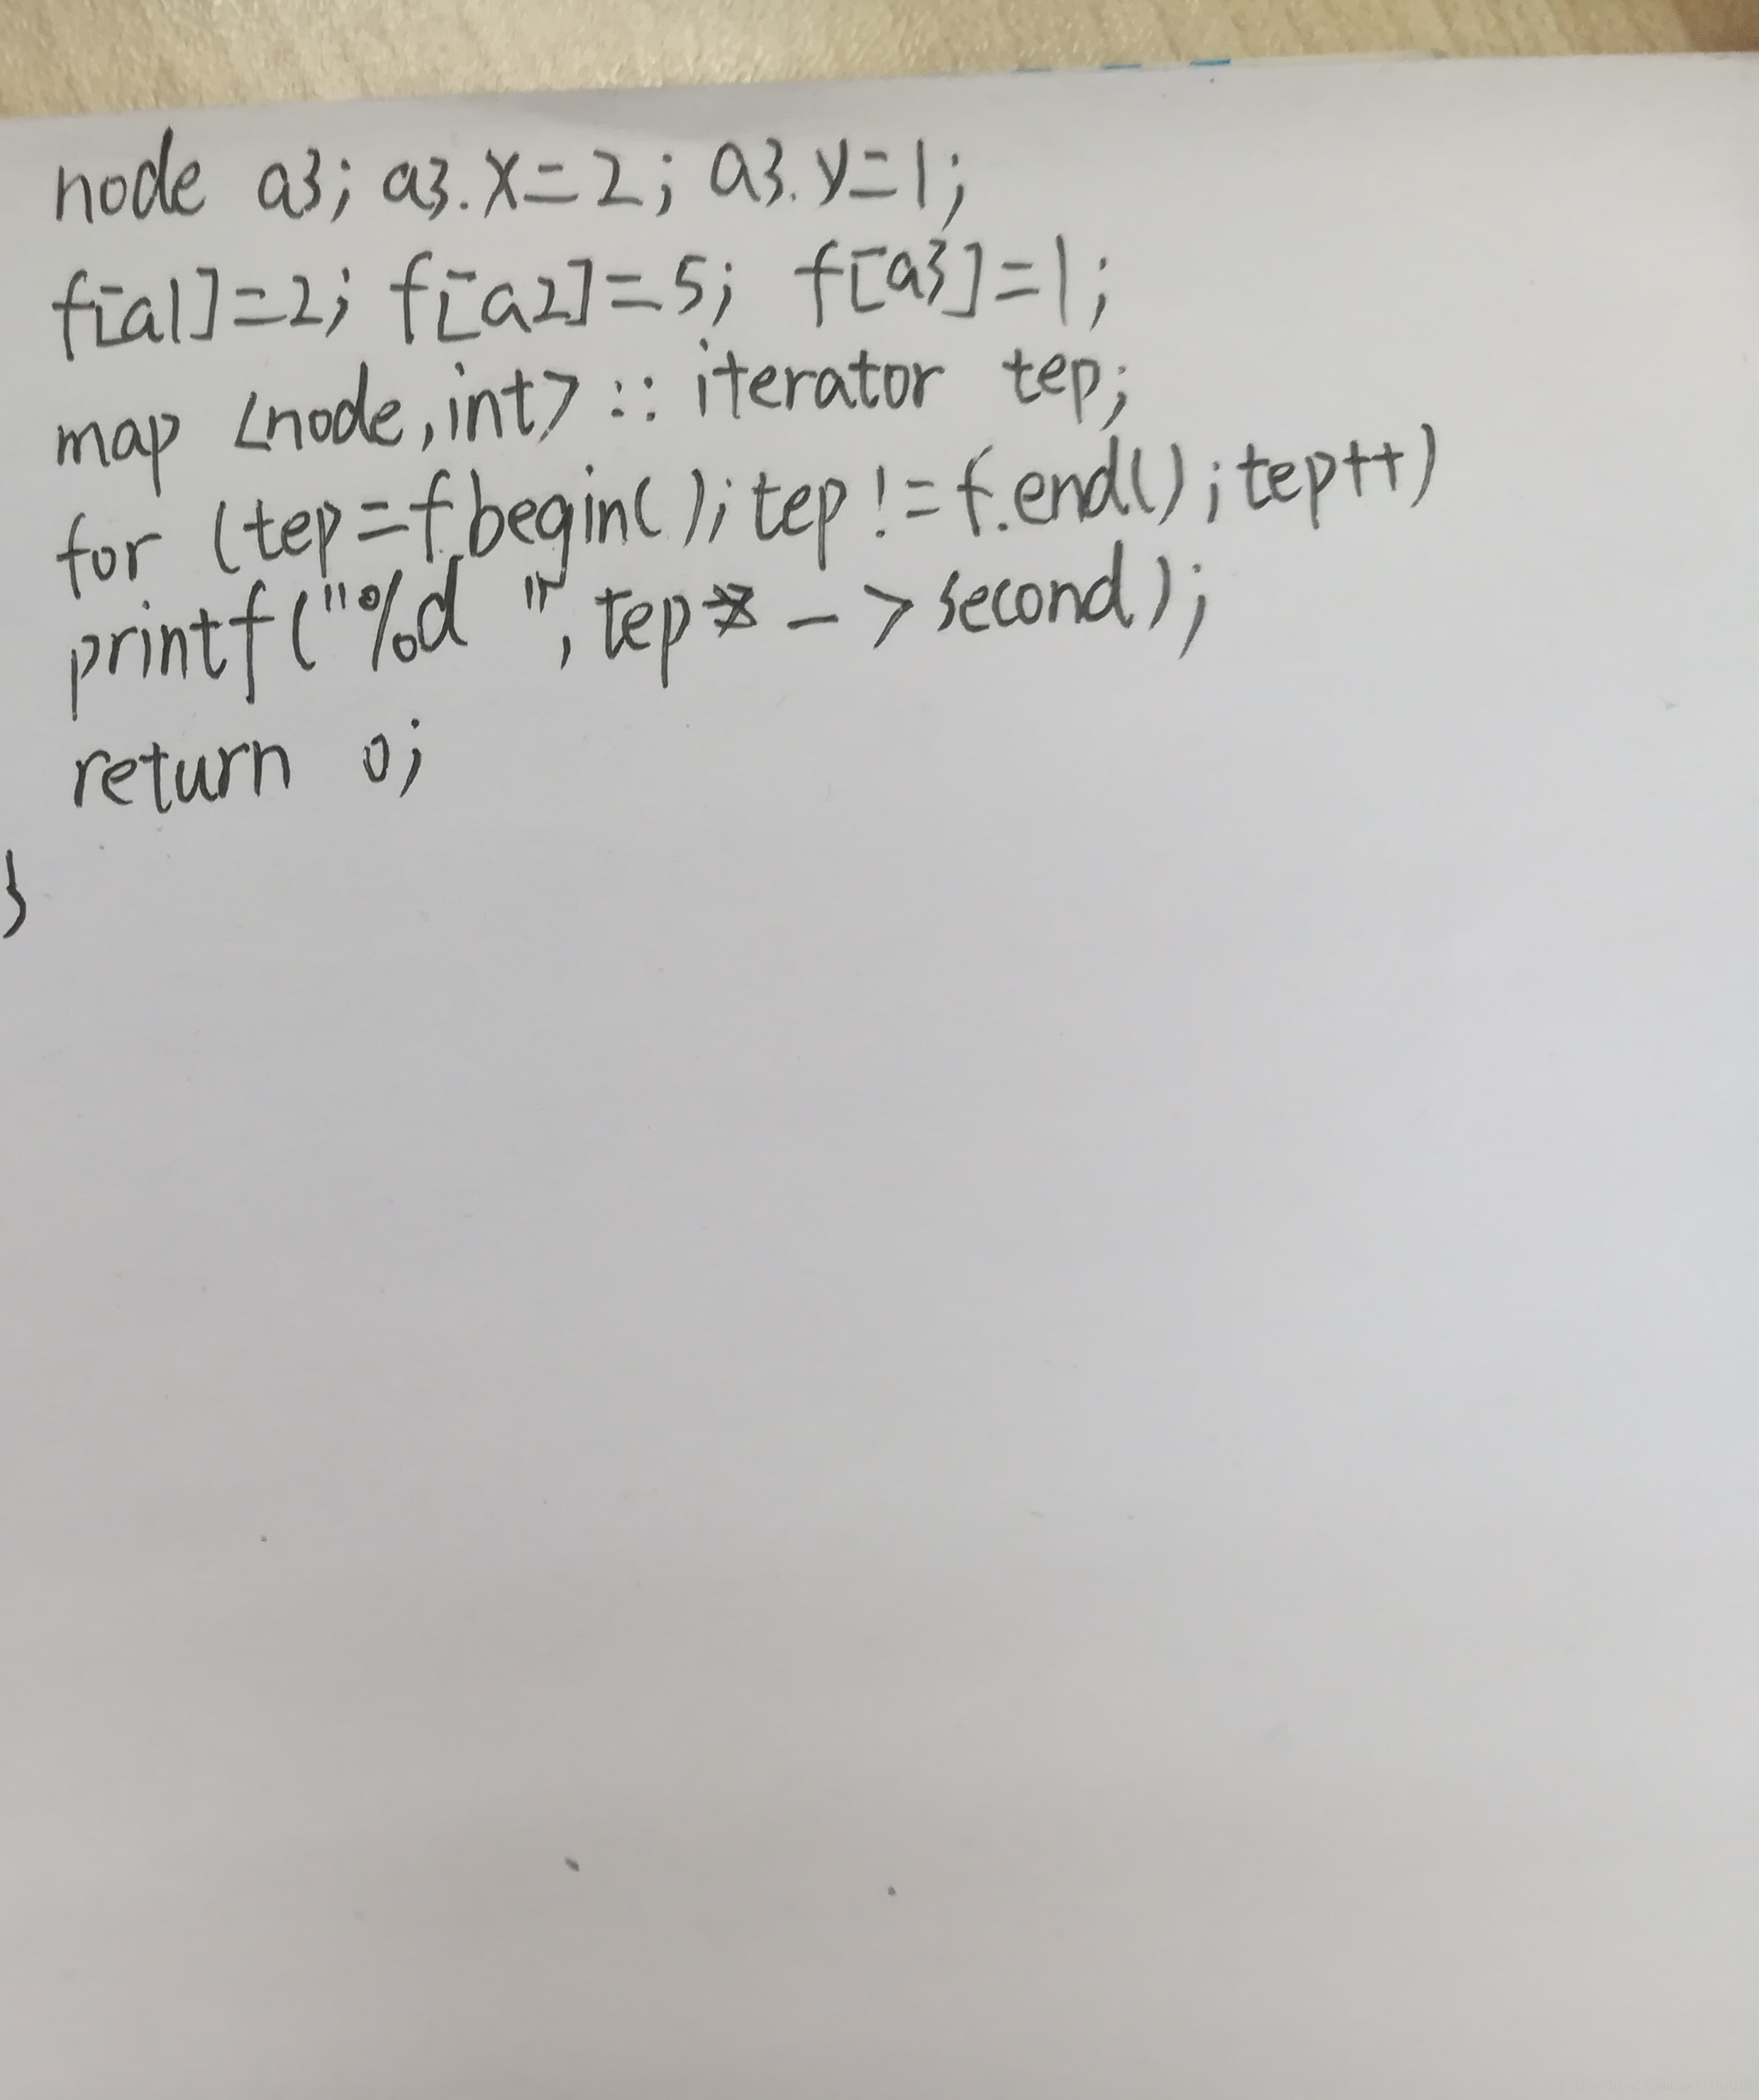 node a3; a3.x=2; a3.y=1;
f[a1]=2; f[a2]=5; f[a3]=1;
map <node,int> :: iterator tep;
for (tep=f.begin(); tep!=f.end(); tep++)
printf("%d ", tep -> second);
return 0;
}